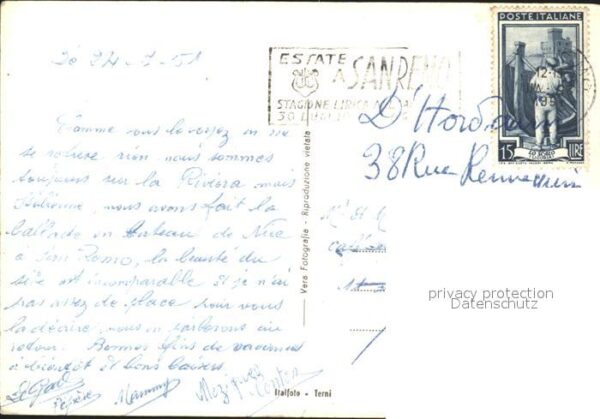 POSTE ITALIANE
ESTATE
A SANREMO
STAGIONE LIRICA
30 LUGLIO
15 LIRE
D'Hondau
38 Rue
le 24-7-51
Comme vous le voyez on ne
se refuse rien nous sommes
toujours sur la Riviera mais
Italienne, nous avons fait la
ballade en bateau de Nice
à San Remo, la beauté du
site est incomparable et je n'ai
pas assez de place pour vous
la décrire, nous en parlerons au
retour. Bonnes fins de vacances
à bientôt et bons baisers
Mammy
Vera Fotografia - Riproduzione vietata
privacy protection
Datenschutz
Italfoto - Terni